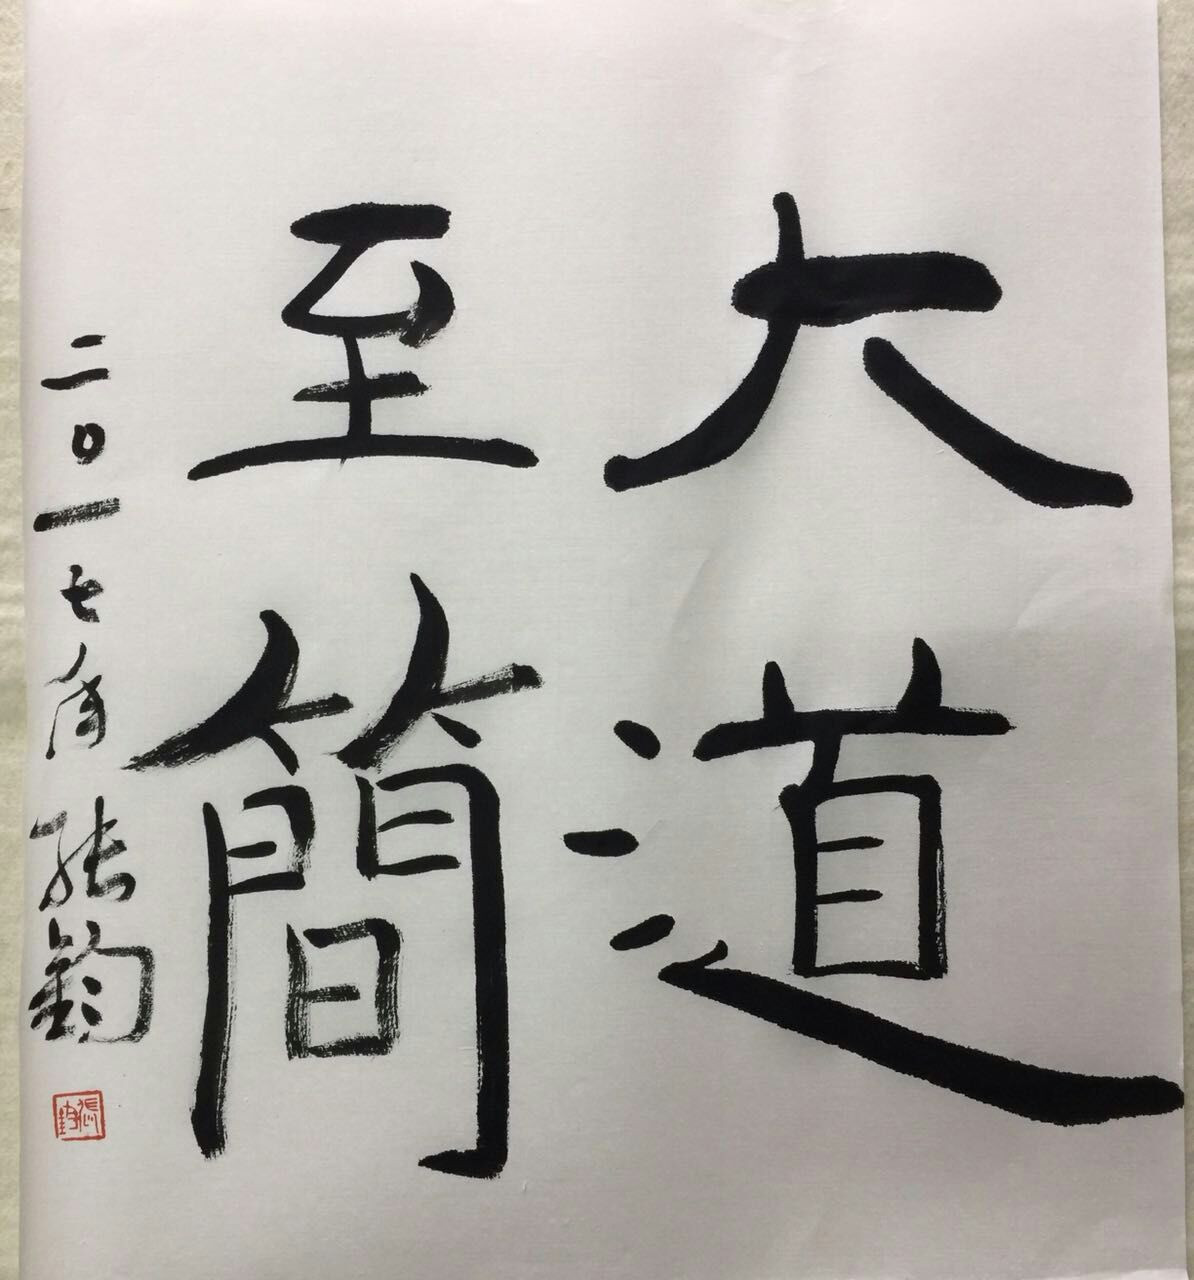 大道
至簡
二〇一七年張鈞
張鈞